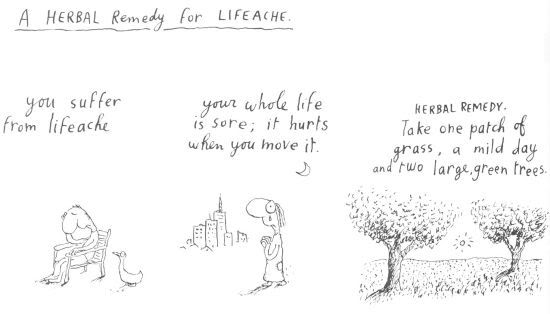 A HERBAL Remedy for LIFEACHE.
you suffer
from lifeache
your whole life
is sore; it hurts
when you move it.
HERBAL REMEDY.
Take one patch of
grass, a mild day
and two large,green trees.